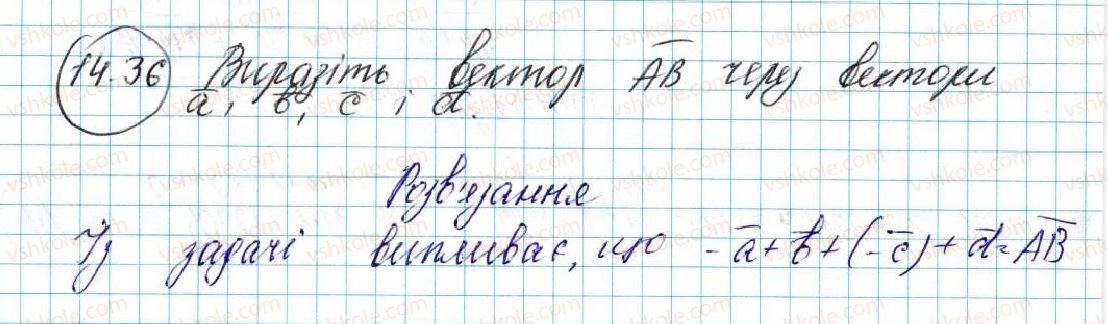 14.36 Виразіть вектор A̅B̅ через вектори
a̅, b̅, c̅ і d̅.
Розв'язання
Із задачі випливає, що -a̅+b̅+(-c̅)+d̅=A̅B̅